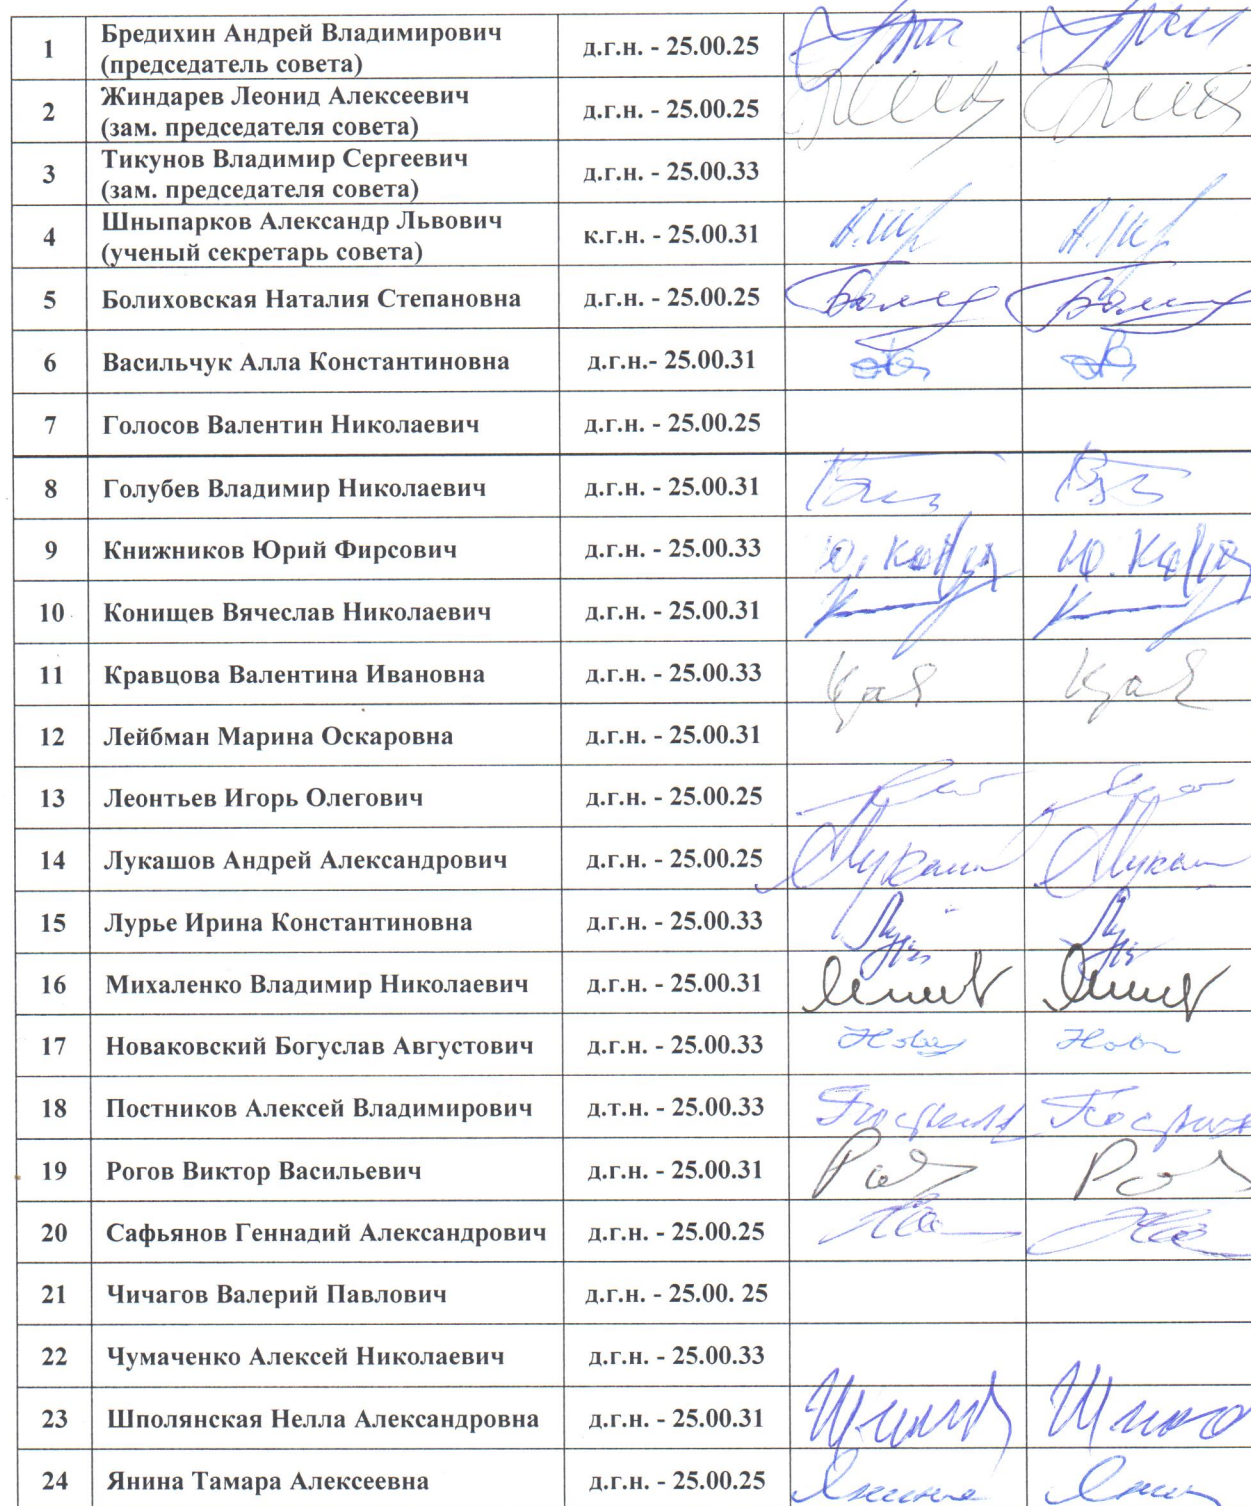 1 Бредихин Андрей Владимирович д.г.н. - 25.00.25
(председатель совета)
2 Жиндарев Леонид Алексеевич д.г.н. - 25.00.25
(зам. председателя совета)
3 Тикунов Владимир Сергеевич д.г.н. - 25.00.33
(зам. председателя совета)
4 Шныпарков Александр Львович к.г.н. - 25.00.31
(ученый секретарь совета)
5 Болиховская Наталия Степановна д.г.н. - 25.00.25
6 Васильчук Алла Константиновна д.г.н.- 25.00.31
7 Голосов Валентин Николаевич д.г.н. - 25.00.25
8 Голубев Владимир Николаевич д.г.н. - 25.00.31
9 Книжников Юрий Фирсович д.г.н. - 25.00.33
10 Конищев Вячеслав Николаевич д.г.н. - 25.00.31
11 Кравцова Валентина Ивановна д.г.н. - 25.00.33
12 Лейбман Марина Оскаровна д.г.н. - 25.00.31
13 Леонтьев Игорь Олегович д.г.н. - 25.00.25
14 Лукашов Андрей Александрович д.г.н. - 25.00.25
15 Лурье Ирина Константиновна д.г.н. - 25.00.33
16 Михаленко Владимир Николаевич д.г.н. - 25.00.31
17 Новаковский Богуслав Августович д.г.н. - 25.00.33
18 Постников Алексей Владимирович д.т.н. - 25.00.33
19 Рогов Виктор Васильевич д.г.н. - 25.00.31
20 Сафьянов Геннадий Александрович д.г.н. - 25.00.25
21 Чичагов Валерий Павлович д.г.н. - 25.00. 25
22 Чумаченко Алексей Николаевич д.г.н. - 25.00.33
23 Шполянская Нелла Александровна д.г.н. - 25.00.31
24 Янина Тамара Алексеевна д.г.н. - 25.00.25